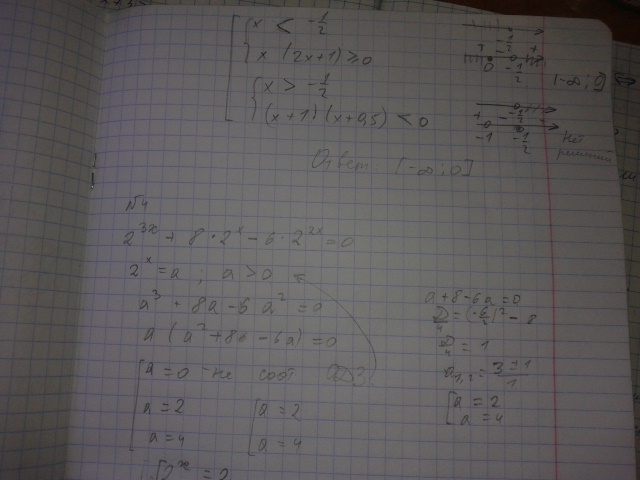 x < -1/2
x (2x+1) ≥ 0
x > -1/2
(x+1) (x+0,5) < 0
+ - +
0 -1/2
(-∞; 0]
-1/2
+ - +
-1 -1/2
Нет
решений
Ответ (-∞; 0]
№4
2^{3x} + 8 · 2^x - 6 · 2^{2x} = 0
2^x = a ; a > 0
a^3 + 8a - 6 a^2 = 0
a (a^2 + 8 - 6a) = 0
a = 0 - не соот ОДЗ
a = 2
a = 4
a = 2
a = 4
2^x = 2
a + 8 - 6a = 0
D/4 = (-6/2)^2 - 8
D/4 = 1
a_{1,2} = 3±1/1
a = 2
a = 4